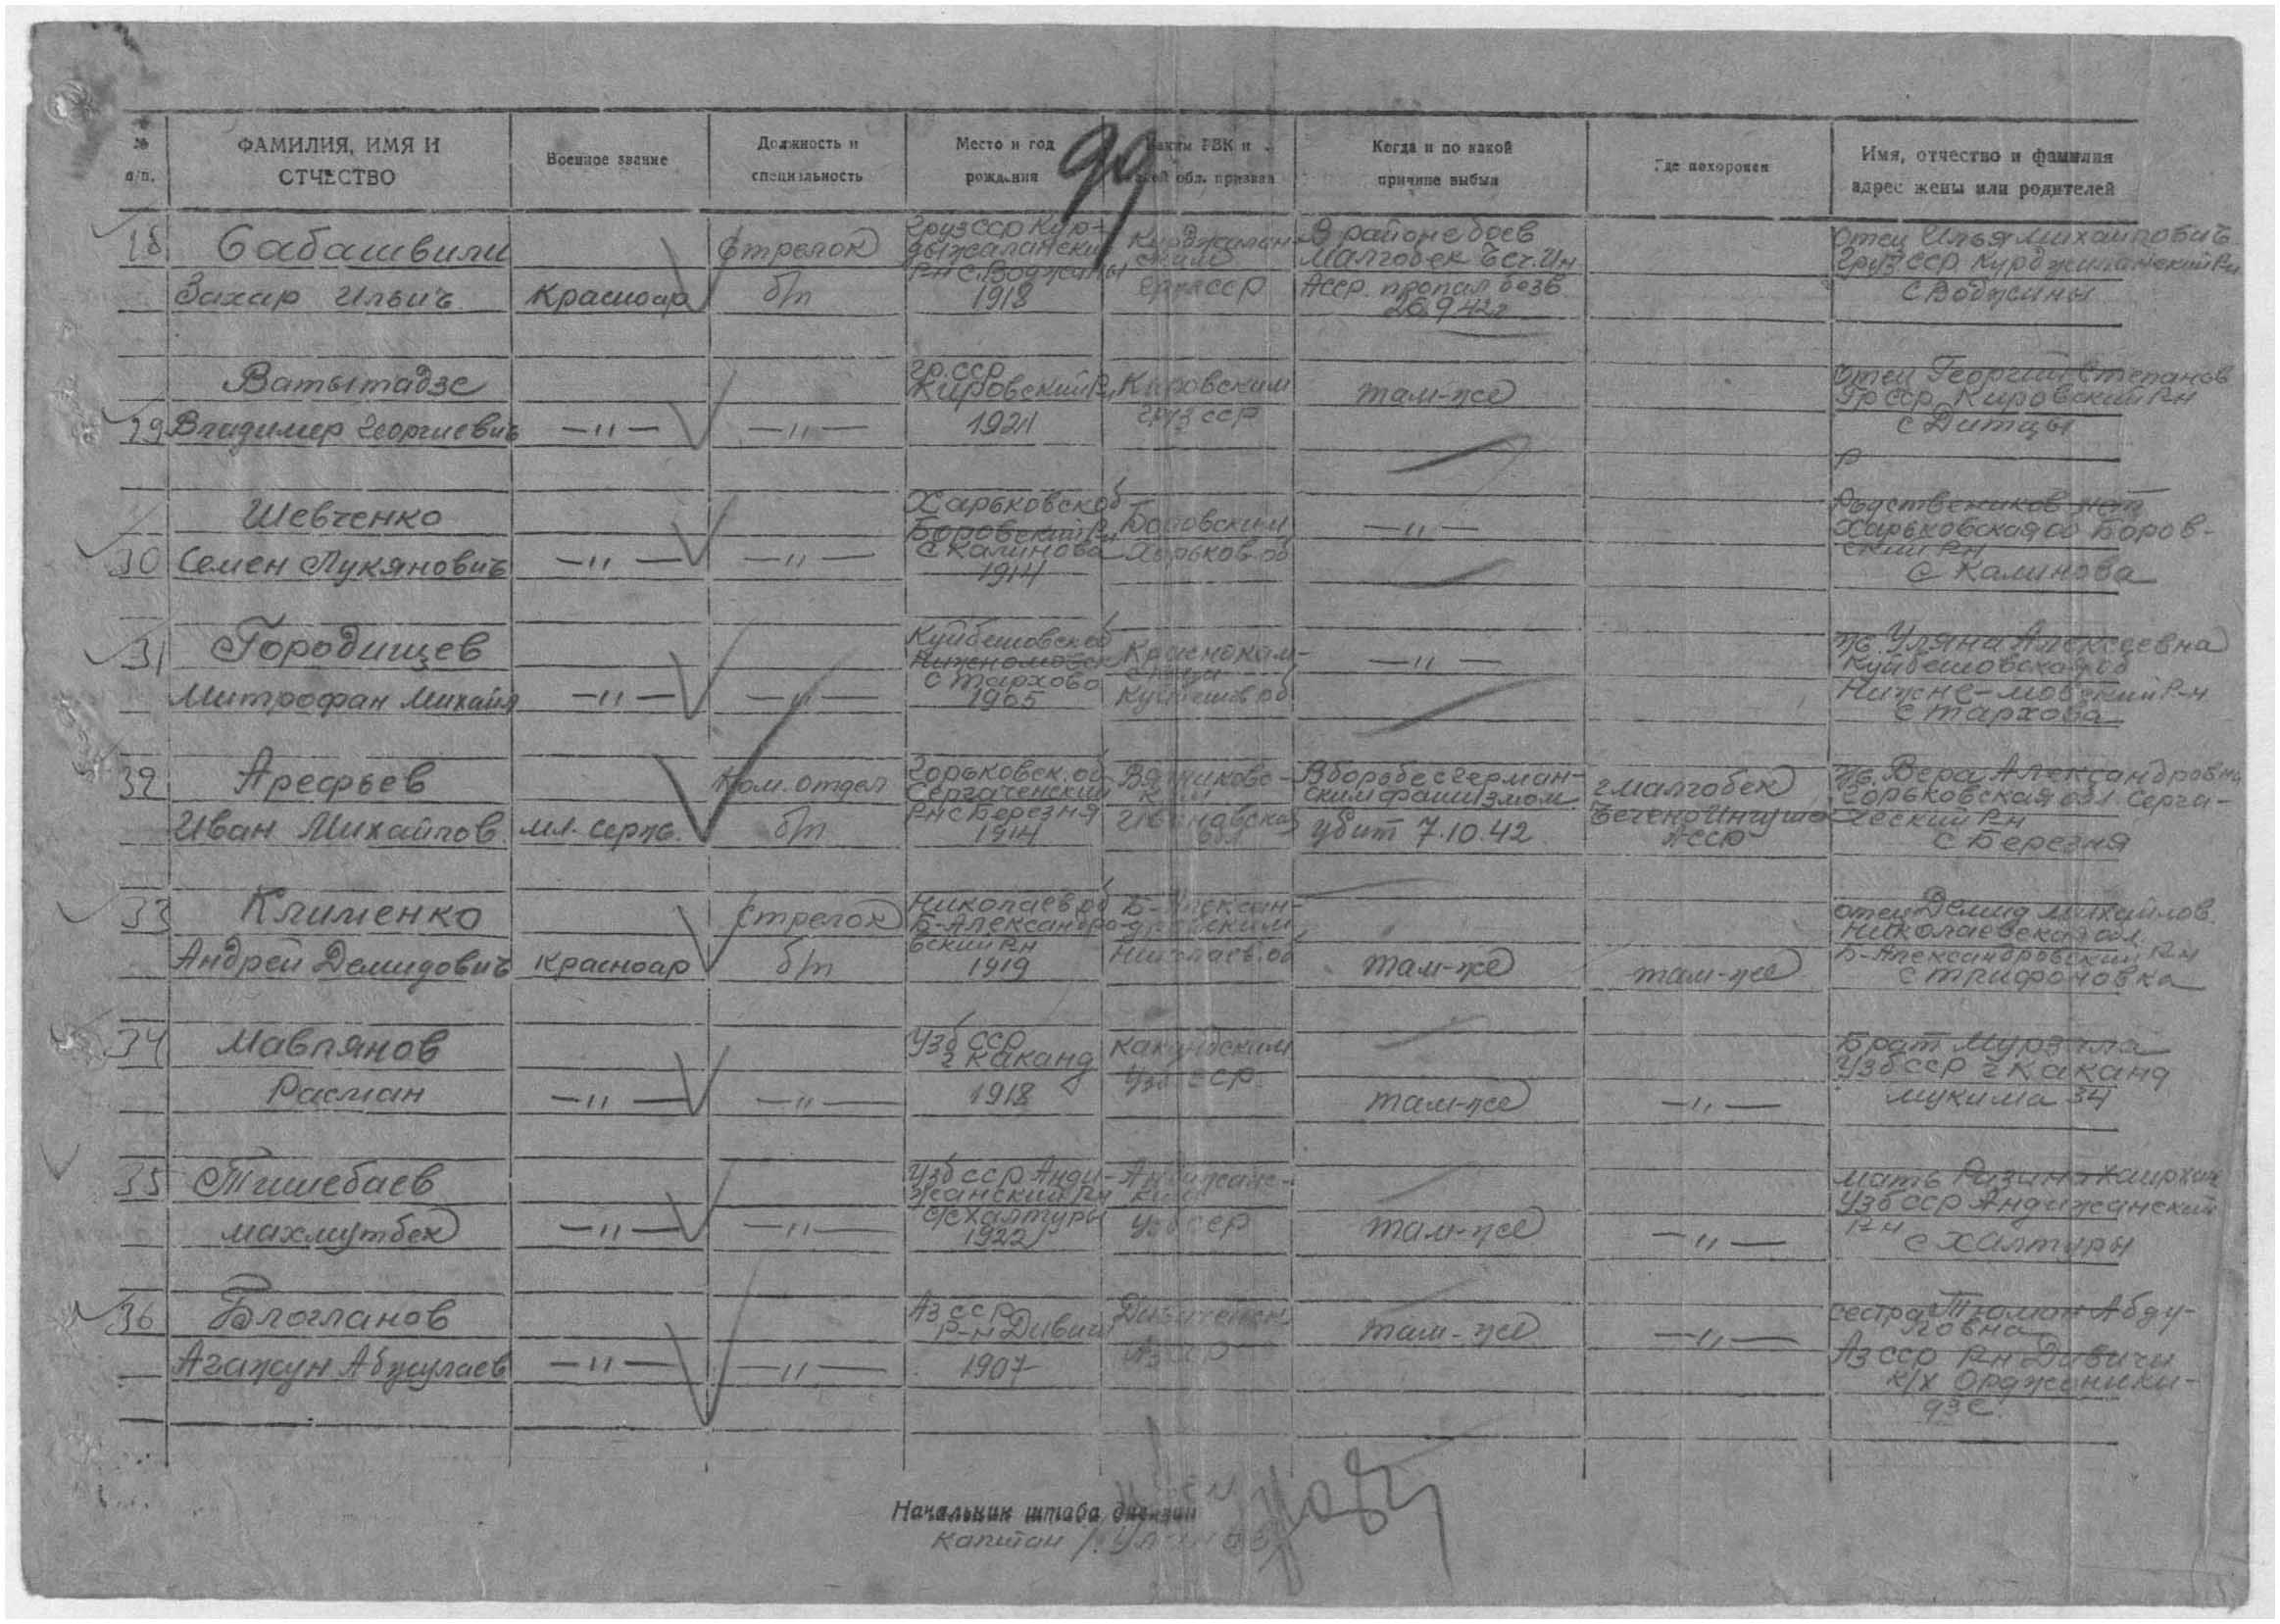 99
№ п/п.
ФАМИЛИЯ, ИМЯ И ОТЧЕСТВО
Военное звание
Должность и специальность
Место и год рождения
Каким РВК и какой обл. призван
Когда и по какой причине выбыл
Где похоронен
Имя, отчество и фамилия адрес жены или родителей
Сабашвили
Захар Ильич
Красноар
Стрелок
б/п
Груз ССР Кур-
рн с. Воджаны
1918
В районе боев
Малгобек Чеч. Ин
АССР. пропал безв
26.9 42 г
Отец Илья Михайлович
Груз ССР
с Воджины
29
Ватытадзе
Владимир Георгиевич
—"—
—"—
гр. ССР
Кировский Рн
1921
Кировским
Груз ССР
там-же
Отец Георгий Степанов
Гр ССР Кировский Р-н
с Дитцы
30
Шевченко
Семен Лукянович
—"—
—"—
Харьковск об
Боровский Рн
с Калинова
1914
Боровским
Харьков. об
—"—
Родствеников нет
Харьковская об Боров-
ский Рн
с Калинова
31
Городищев
Митрофан Михайл
—"—
—"—
Куйбешовск об
с Тархово
1905
Куйбешев об
—"—
ж. Уляна Алексеевна
Куйбешовская об
Нижне-мовский Р-н
с Тархова
32
Арефьев
Иван Михайлов
мл. серж.
Ком. отдел
б/п
Горьковск. об
Сергаченский
Рн с Березня
1914
Вязниковс-
ким
Ивановская
обл
В борьбе с герман-
ским фашизмом
убит 7.10.42
г Малгобек
Чечено Ингуш
АССР
ж. Вера Александровна
Горьковская обл. Серга-
ческий Рн
с Березня
33
Клименко
Андрей Демидович
Красноар
Стрелок
б/п
Николаев об
Б-Александро-
вский Р-н
1919
Б-Алексан-
дровским
Николаев. об
там-же
там-же
отец Демид Михайлов.
Николаевская обл.
Б-Александровский Р-н
с Трифоновка
34
Мавлянов
Расман
—"—
—"—
Узб ССР
г Каканд
1918
Какандским
Узб ССР
там-же
—"—
Брат Мурзила
Узб ССР г Каканд
Мукима 34
35
Тишебаев
Махмутбек
—"—
—"—
Узб ССР Анди-
жанский Рн
с/с Халтуры
1922
Андижанс-
ким
Узб ССР
там-же
—"—
мать
Узб ССР Андижанский
Р-н
с Халтуры
36
Блогланов
Агажун Абжулаев
—"—
—"—
Аз ССР
Р-н Дивичи
1907
там-же
—"—
сестра Тюман Абду-
ловна
Аз ССР Рн Дивичи
к/х Орджоники-
дзе
Начальник штаба дивизии
Капитан